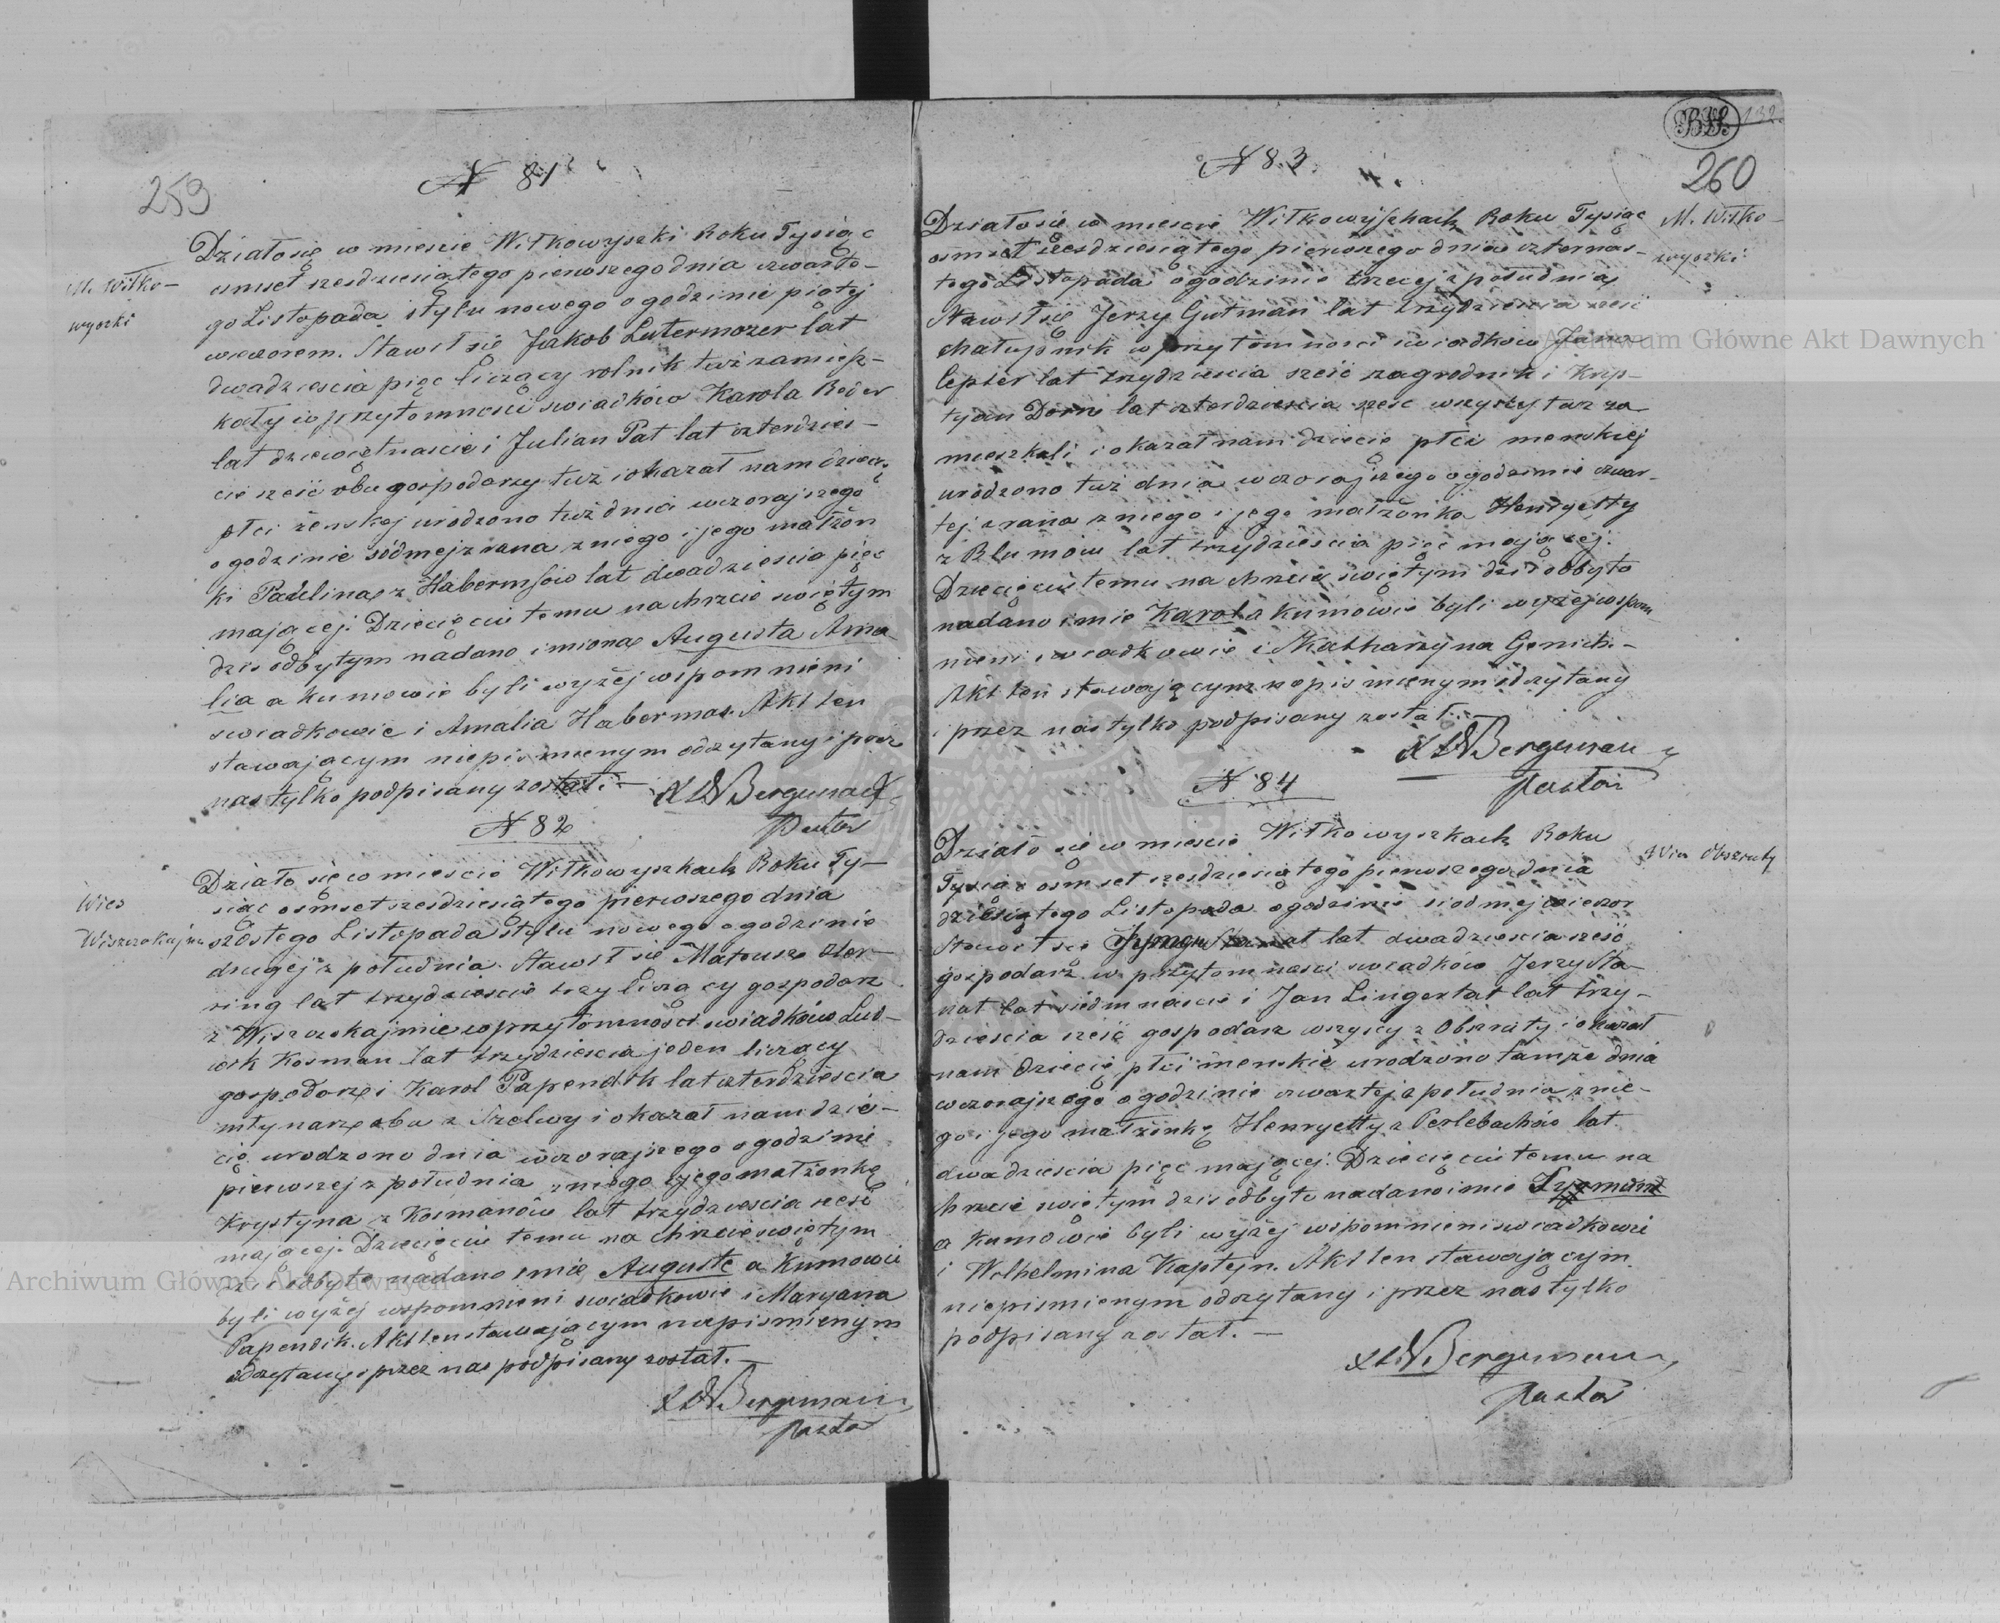 259
N 81
M. Wiłko-
wyszki
Działo się w miescie Wiłkowyszki Roku Tysiąc
osmset szesdziesiątego pierwszego dnia czwarte-
go Listopada stylu nowego o godzinie piątej
wieczorem. Stawił się Jakob Lutermozer lat
dwadziescia pięc liczący rolnik tuż zamiesz-
kały w przytomnosci swiadków Karola Reder
lat dziewiętnascie i Julian Pat lat czterdzies-
ci szesć obu gospodarzy tuż i okazał nam dziec
płci żenskej urodzono tuż dnia wczorajszego
o godzinie siódmej z rana z niego i jego małżon
ki Paulinae z Habermsów lat dwadziescia pięc
mającej. Dziecięciu temu na chrzcie swiętym
dzis odbytym nadano imiona Augusta Ama
lia a kumowie byli wyżej wspomnieni
swiadkowie i Amalia Habermas. Akt ten
stawającym niepismienym odczytany i przez
nas tylko podpisany został. —
Bergman
Pastor
N 82
Wies
Wiszczakajmie
Działo się w miescie Wiłkowyszkach Roku Ty-
siąc osmset szesdziesiątego pierwszego dnia
szostego Listopada stylu nowego o godzinie
drugej z południa. Stawił się Mateusz
ring lat trzydziescie trzy liczący gospodarz
z Wiszczakajmie w przytomności swiadków Lud-
wik Kosman lat trzydziescia jeden liczący
gospodarz i Karol Papendik lat czterdziescia
młynarz oba z Szelwy i okazał nam dzie-
cię urodzono dnia wczorajszego o godzinie
pierwszej z południa z niego i jego małżonkę
Krystyna z Kosmanów lat trzydziescia szesc
mającej. Dziecięciu temu na chrzcie swiętym
dzis odbyto nadano imie Auguste a Kumowie
byli wyżej wspomnieni swiadkowie i Maryana
Papendik. Akt ten stawającym niepismienym
odczytany i przez nas podpisany został. —
Bergman
Pastor
132
260
N 83
M. Wiłko-
wyszki
Działo się w miescie Wiłkowyszkach Roku Tysiąc
osmset szesdziesiątego pierwszego dnia czternas-
tego Listopada o godzinie trzecej z południa
Stawił się Jerzy Gutman lat trzydziescia szesć
chałupnik w przytomnosci swiadków Jana
Lepser lat trzydziescia szesć zagrodnik i Krys-
tyan Dorn lat czterdziescia szesc wszyscy tuż za
mieszkali i okazał nam dziecię płci menskiej
urodzono tuż dnia wczorajszego o godzinie czwar-
tej z rana z niego i jego małżonka Henryetty
z Blumów lat trzydziescia pięc mającej.
Dziecięciu temu na chrzcie swiętym dzis odbyto
nadano imie Karol a kumowie byli wyżej wspom
nieni swiadkowie i Katharzyna Genich. —
Akt ten stawającym niepismienym odczytany
i przez nas tylko podpisany został.
Bergman
Pastor
N 84
Wies Obszruty
Działo się w miescie Wiłkowyszkach Roku
Tysiąc osmset szesdziesiątego pierwszego dnia
dziesiątego Listopada o godzinie siodmej wieczor
Stawił się lat dwadziescia szesć
gospodarz w przytomnosci swiadków Jerzy Sta-
nat lat siedmnascie i Jan Lingertat lat trzy-
dziescia szesć gospodarz wszyscy z Obszruty i okazał
nam dziecię płci menskie urodzono tamże dnia
wczorajszego o godzinie czwartej z południa z nie-
go i jego małżonkę Henryetty z Perlebachów lat
dwadziescia pięc mającej. Dziecięciu temu na
chrzcie swiętym dzis odbyto nadano imie
a Kumowie byli wyżej wspomnieni swiadkowie
i Wilhelmina Kaptejn. Akt ten stawającym
niepismienym odczytany i przez nas tylko
podpisany został. —
Bergman
Pastor
Archiwum Główne Akt Dawnych
Archiwum Główne Akt Dawnych